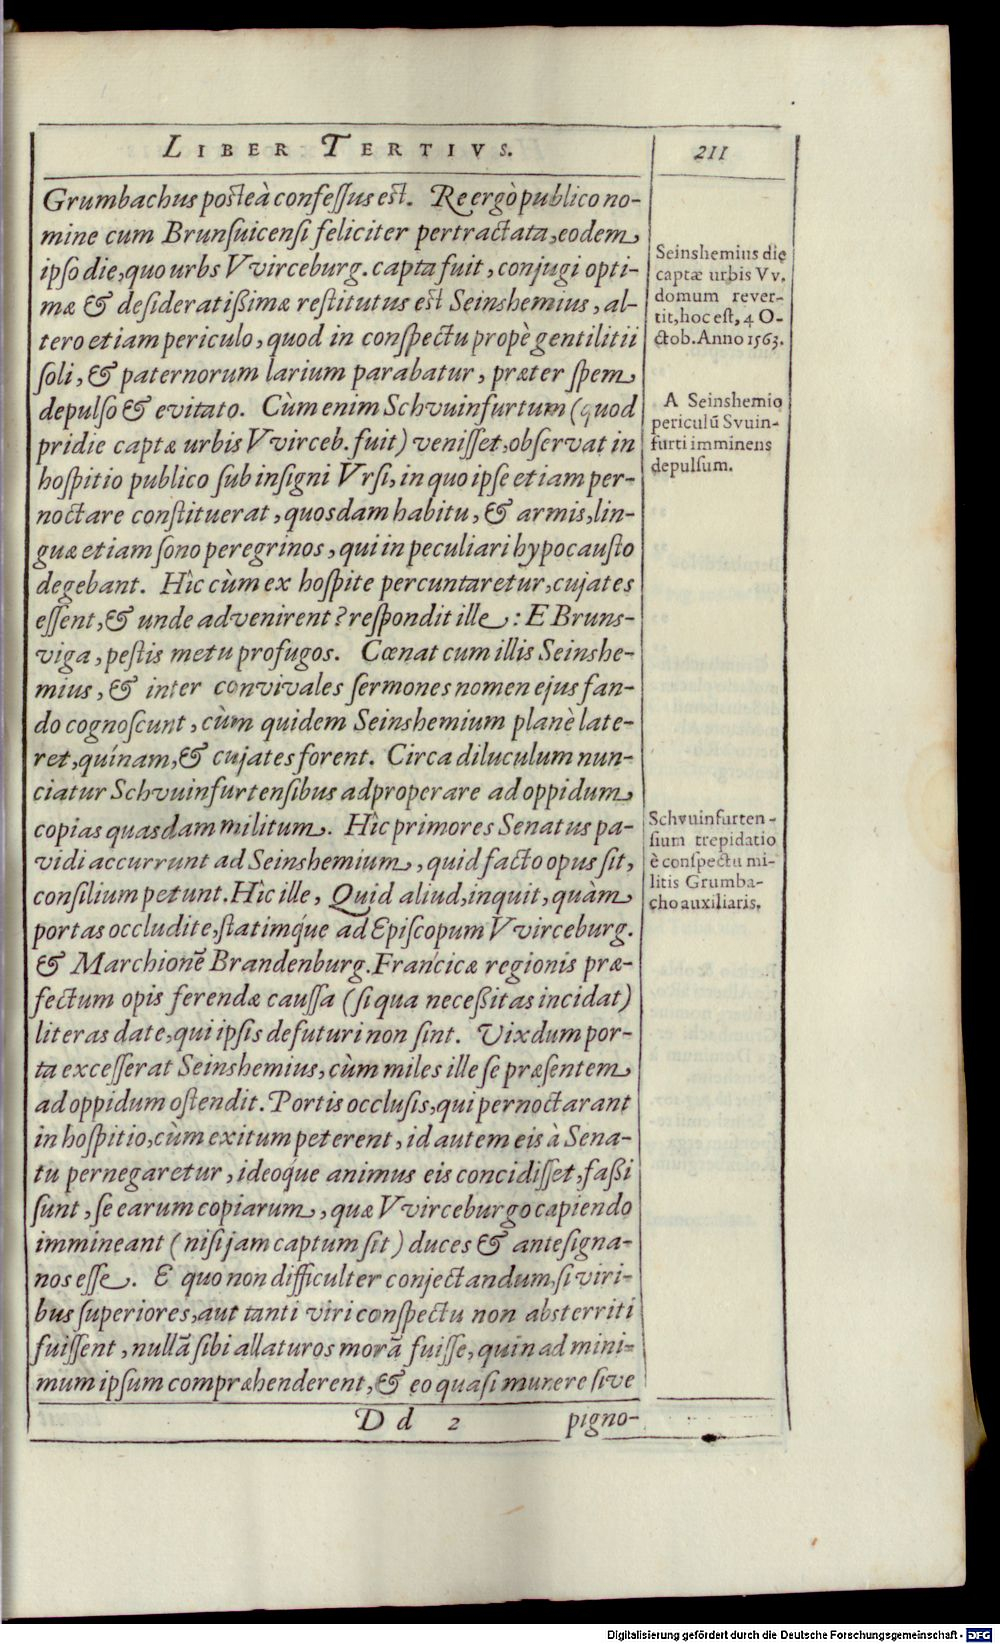 LIBER TERTIVS.
211
Grumbachus posteà confessus est. Re ergò publico no-
mine cum Brunsuicensi feliciter pertractata, eodem
ipso die, quo urbs VVirceburg. capta fuit, conjugi opti-
mæ & desideratißimæ restitutus est Seinshemius, al-
tero etiam periculo, quod in conspectu propè gentilitii
soli, & paternorum larium parabatur, præter spem
depulso & evitato. Cùm enim Schvuinfurtum (quod
pridie captæ urbis VVirceb. fuit) venisset, observat in
hospitio publico sub insigni Ursi, in quo ipse etiam per-
noctare constituerat, quosdam habitu, & armis, lin-
guæ etiam sono peregrinos, qui in peculiari hypocausto
degebant. Hîc cùm ex hospite percuntaretur, cujates
essent, & unde advenirent? respondit ille: E Bruns-
viga, pestis metu profugos. Cœnat cum illis Seinshe-
mius, & inter convivales sermones nomen ejus fan-
do cognoscunt, cùm quidem Seinshemium planè late-
ret, quínam, & cujates forent. Circa diluculum nun-
ciatur Schvuinfurtensibus adproperare ad oppidum
copias quasdam militum. Hîc primores Senatus pa-
vidi accurrunt ad Seinshemium, quid facto opus sit,
consilium petunt. Hîc ille, Quid aliud, inquit, quàm
portas occludite, statimq́ue ad Episcopum VVirceburg.
& Marchionẽ Brandenburg. Francicæ regionis præ-
fectum opis ferendæ caussa (si qua neceßitas incidat)
literas date, qui ipsis defuturi non sint. Vixdum por-
ta excesserat Seinshemius, cùm miles ille se præsentem
ad oppidum ostendit. Portis occlusis, qui pernoctarant
in hospitio, cùm exitum peterent, id autem eis à Sena-
tu pernegaretur, ideoq́ue animus eis concidisset, faßi
sunt, se earum copiarum, quæ VVirceburgo capiendo
immineant (nisi jam captum sit) duces & antesigna-
nos esse. E quo non difficulter conjectandum, si viri-
bus superiores, aut tanti viri conspectu non absterriti
fuissent, nullã sibi allaturos morã fuisse, quin ad mini-
mum ipsum compræhenderent, & eo quasi munere sive
Dd 2
pigno-
Seinshemius die
captæ urbis Vv.
domum rever-
tit, hoc est, 4 O-
ctob. Anno 1563.
A Seinshemio
periculũ Svuin-
furti imminens
depulsum.
Schvuinfurten-
sium trepidatio
è conspectu mi-
litis Grumba-
cho auxiliaris.
Digitalisierung gefördert durch die Deutsche Forschungsgemeinschaft - DFG